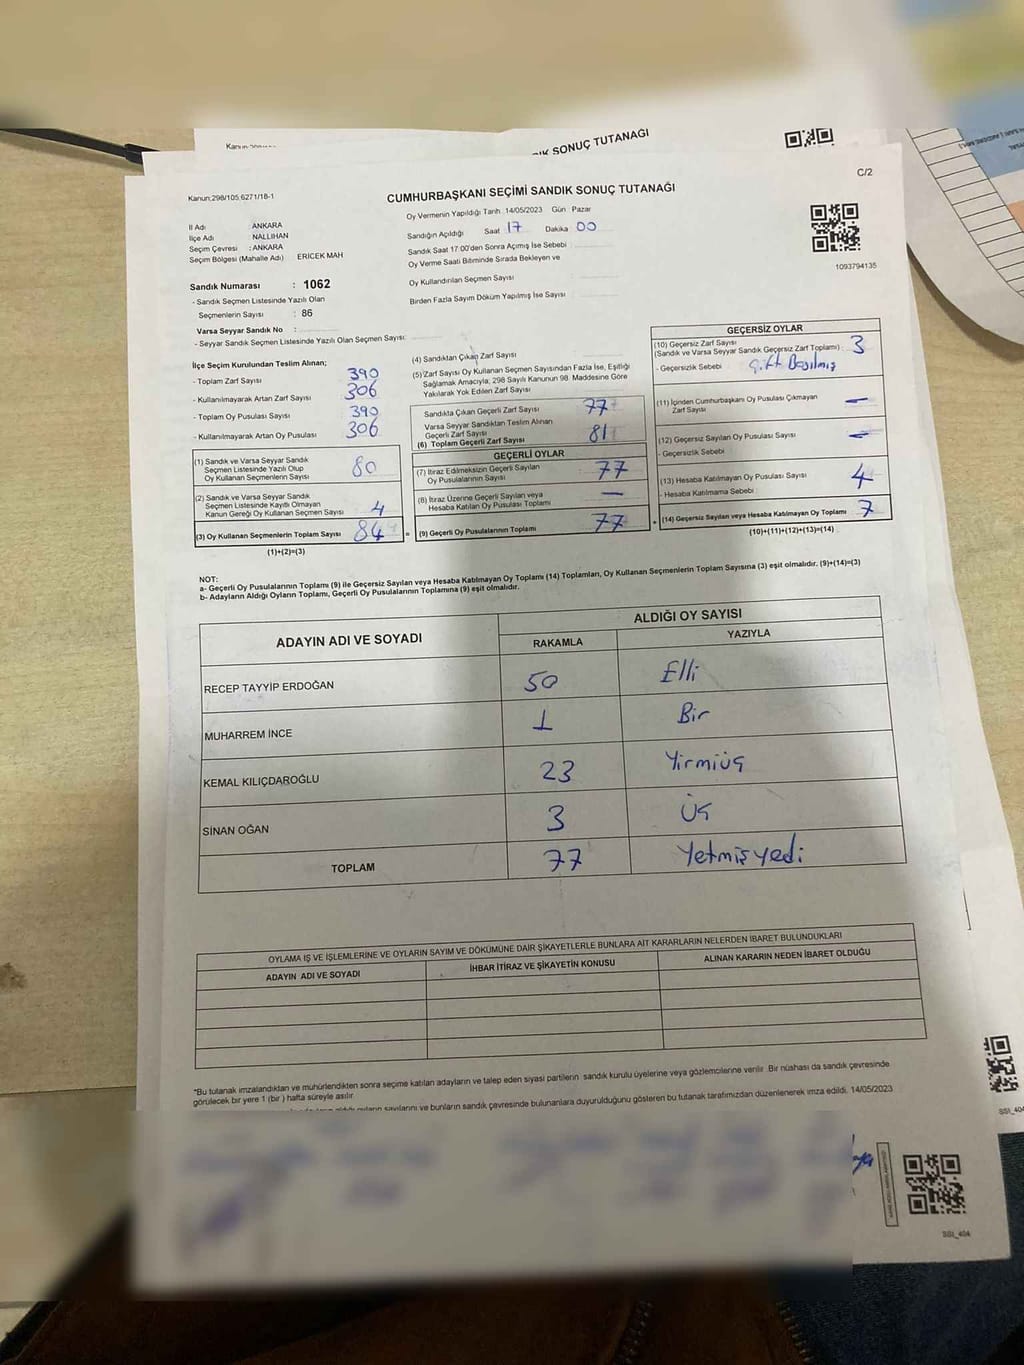 SONUÇ TUTANAĞI
C/2
Kanun:298/105.6271/18-1
CUMHURBAŞKANI SEÇİMİ SANDIK SONUÇ TUTANAĞI
İl Adı : ANKARA
İlçe Adı : NALLIHAN
Seçim Çevresi : ANKARA
Seçim Bölgesi (Mahalle Adı) ERİCEK MAH
Oy Vermenin Yapıldığı Tarih :14/05/2023 Gün : Pazar
Sandığın Açıldığı Saat 17 Dakika 00
Sandık Saat 17:00'den Sonra Açımış İse Sebebi
Oy Verme Saati Bitiminde Sırada Bekleyen ve
Oy Kullandırılan Seçmen Sayısı
Birden Fazla Sayım Döküm Yapılmış İse Sayısı
1093794135
Sandık Numarası : 1062
- Sandık Seçmen Listesinde Yazılı Olan
Seçmenlerin Sayısı : 86
Varsa Seyyar Sandık No :
- Seyyar Sandık Seçmen Listesinde Yazılı Olan Seçmen Sayısı:
İlçe Seçim Kurulundan Teslim Alınan;
- Toplam Zarf Sayısı 390
- Kullanılmayarak Artan Zarf Sayısı 306
- Toplam Oy Pusulası Sayısı 390
- Kullanılmayarak Artan Oy Pusulası 306
(1) Sandık ve Varsa Seyyar Sandık
Seçmen Listesinde Yazılı Olup
Oy Kullanan Seçmenlerin Sayısı 80
(2) Sandık ve Varsa Seyyar Sandık
Seçmen Listesinde Kayıtlı Olmayan
Kanun Gereği Oy Kullanan Seçmen Sayısı 4
(3) Oy Kullanan Seçmenlerin Toplam Sayısı 84 =
(1)+(2)=(3)
(4) Sandıktan Çıkan Zarf Sayısı
(5) Zarf Sayısı Oy Kullanan Seçmen Sayısından Fazla İse, Eşitliği
Sağlamak Amacıyla; 298 Sayılı Kanunun 98. Maddesine Göre
Yakılarak Yok Edilen Zarf Sayısı
Sandıkta Çıkan Geçerli Zarf Sayısı 77
Varsa Seyyar Sandıktan Teslim Alınan
Geçerli Zarf Sayısı
(6) Toplam Geçerli Zarf Sayısı 81
GEÇERLİ OYLAR
(7) İtiraz Edilmeksizin Geçerli Sayılan
Oy Pusulalarının Sayısı 77
(8) İtiraz Üzerine Geçerli Sayılan veya
Hesaba Katılan Oy Pusulası Toplamı —
(9) Geçerli Oy Pusulalarının Toplamı 77 +
GEÇERSİZ OYLAR
(10) Geçersiz Zarf Sayısı
(Sandık ve Varsa Seyyar Sandık Geçersiz Zarf Toplamı) : 3
- Geçersizlik Sebebi Çift Basılmış
(11) İçinden Cumhurbaşkanı Oy Pusulası Çıkmayan
Zarf Sayısı —
(12) Geçersiz Sayılan Oy Pusulası Sayısı —
- Geçersizlik Sebebi
(13) Hesaba Katılmayan Oy Pusulası Sayısı 4
- Hesaba Katılmama Sebebi
(14) Geçersiz Sayılan veya Hesaba Katılmayan Oy Toplamı 7
(10)+(11)+(12)+(13)=(14)
NOT:
a- Geçerli Oy Pusulalarının Toplamı (9) ile Geçersiz Sayılan veya Hesaba Katılmayan Oy Toplamı (14) Toplamları, Oy Kullanan Seçmenlerin Toplam Sayısına (3) eşit olmalıdır. (9)+(14)=(3)
b- Adayların Aldığı Oyların Toplamı, Geçerli Oy Pusulalarının Toplamına (9) eşit olmalıdır.
ADAYIN ADI VE SOYADI ALDIĞI OY SAYISI
RAKAMLA YAZIYLA
RECEP TAYYİP ERDOĞAN 50 Elli
MUHARREM İNCE 1 Bir
KEMAL KILIÇDAROĞLU 23 Yirmiüç
SİNAN OĞAN 3 Üç
TOPLAM 77 Yetmişyedi
OYLAMA İŞ VE İŞLEMLERİNE VE OYLARIN SAYIM VE DÖKÜMÜNE DAİR ŞİKAYETLERLE BUNLARA AİT KARARLARIN NELERDEN İBARET BULUNDUKLARI
ADAYIN ADI VE SOYADI İHBAR İTİRAZ VE ŞİKAYETİN KONUSU ALINAN KARARIN NEDEN İBARET OLDUĞU
*Bu tutanak imzalandıktan ve mühürlendikten sonra seçime katılan adayların ve talep eden siyasi partilerin sandık kurulu üyelerine veya gözlemcilerine verilir .Bir nüshası da sandık çevresinde
görülecek bir yere 1 (bir ) hafta süreyle asılır.
oyların sayılarını ve bunların sandık çevresinde bulunanlara duyurulduğunu gösteren bu tutanak tarafımızdan düzenlenerek imza edildi. 14/05/2023
SSI_404
SSI_404